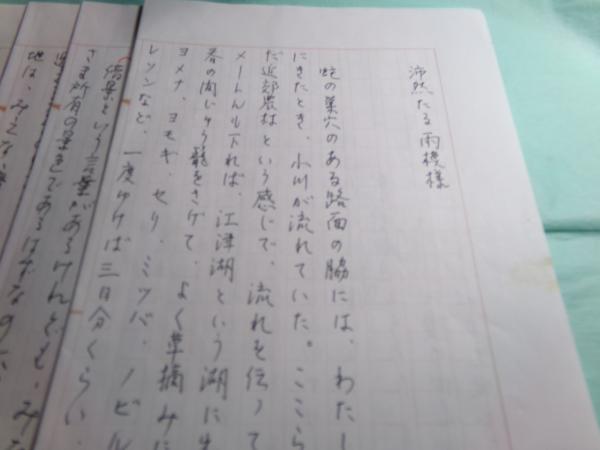 沛然たる雨模様
蛇の巣穴のある路面の脇には、わたし
にきたとき、小川が流れていた。ここら
だ近郊農村という感じで、流れを伝って
メートルも下れば、江津湖という湖に
春の間じゅう籠をさげて、よく草摘みに
ヨメナ、ヨモギ、セリ、ミツバ、ノビル
レソンなど、一度ゆけば三日分くらい、
借景という言葉があるけんども、みな
さま所有の景色であるはずなのに、
地は、みな